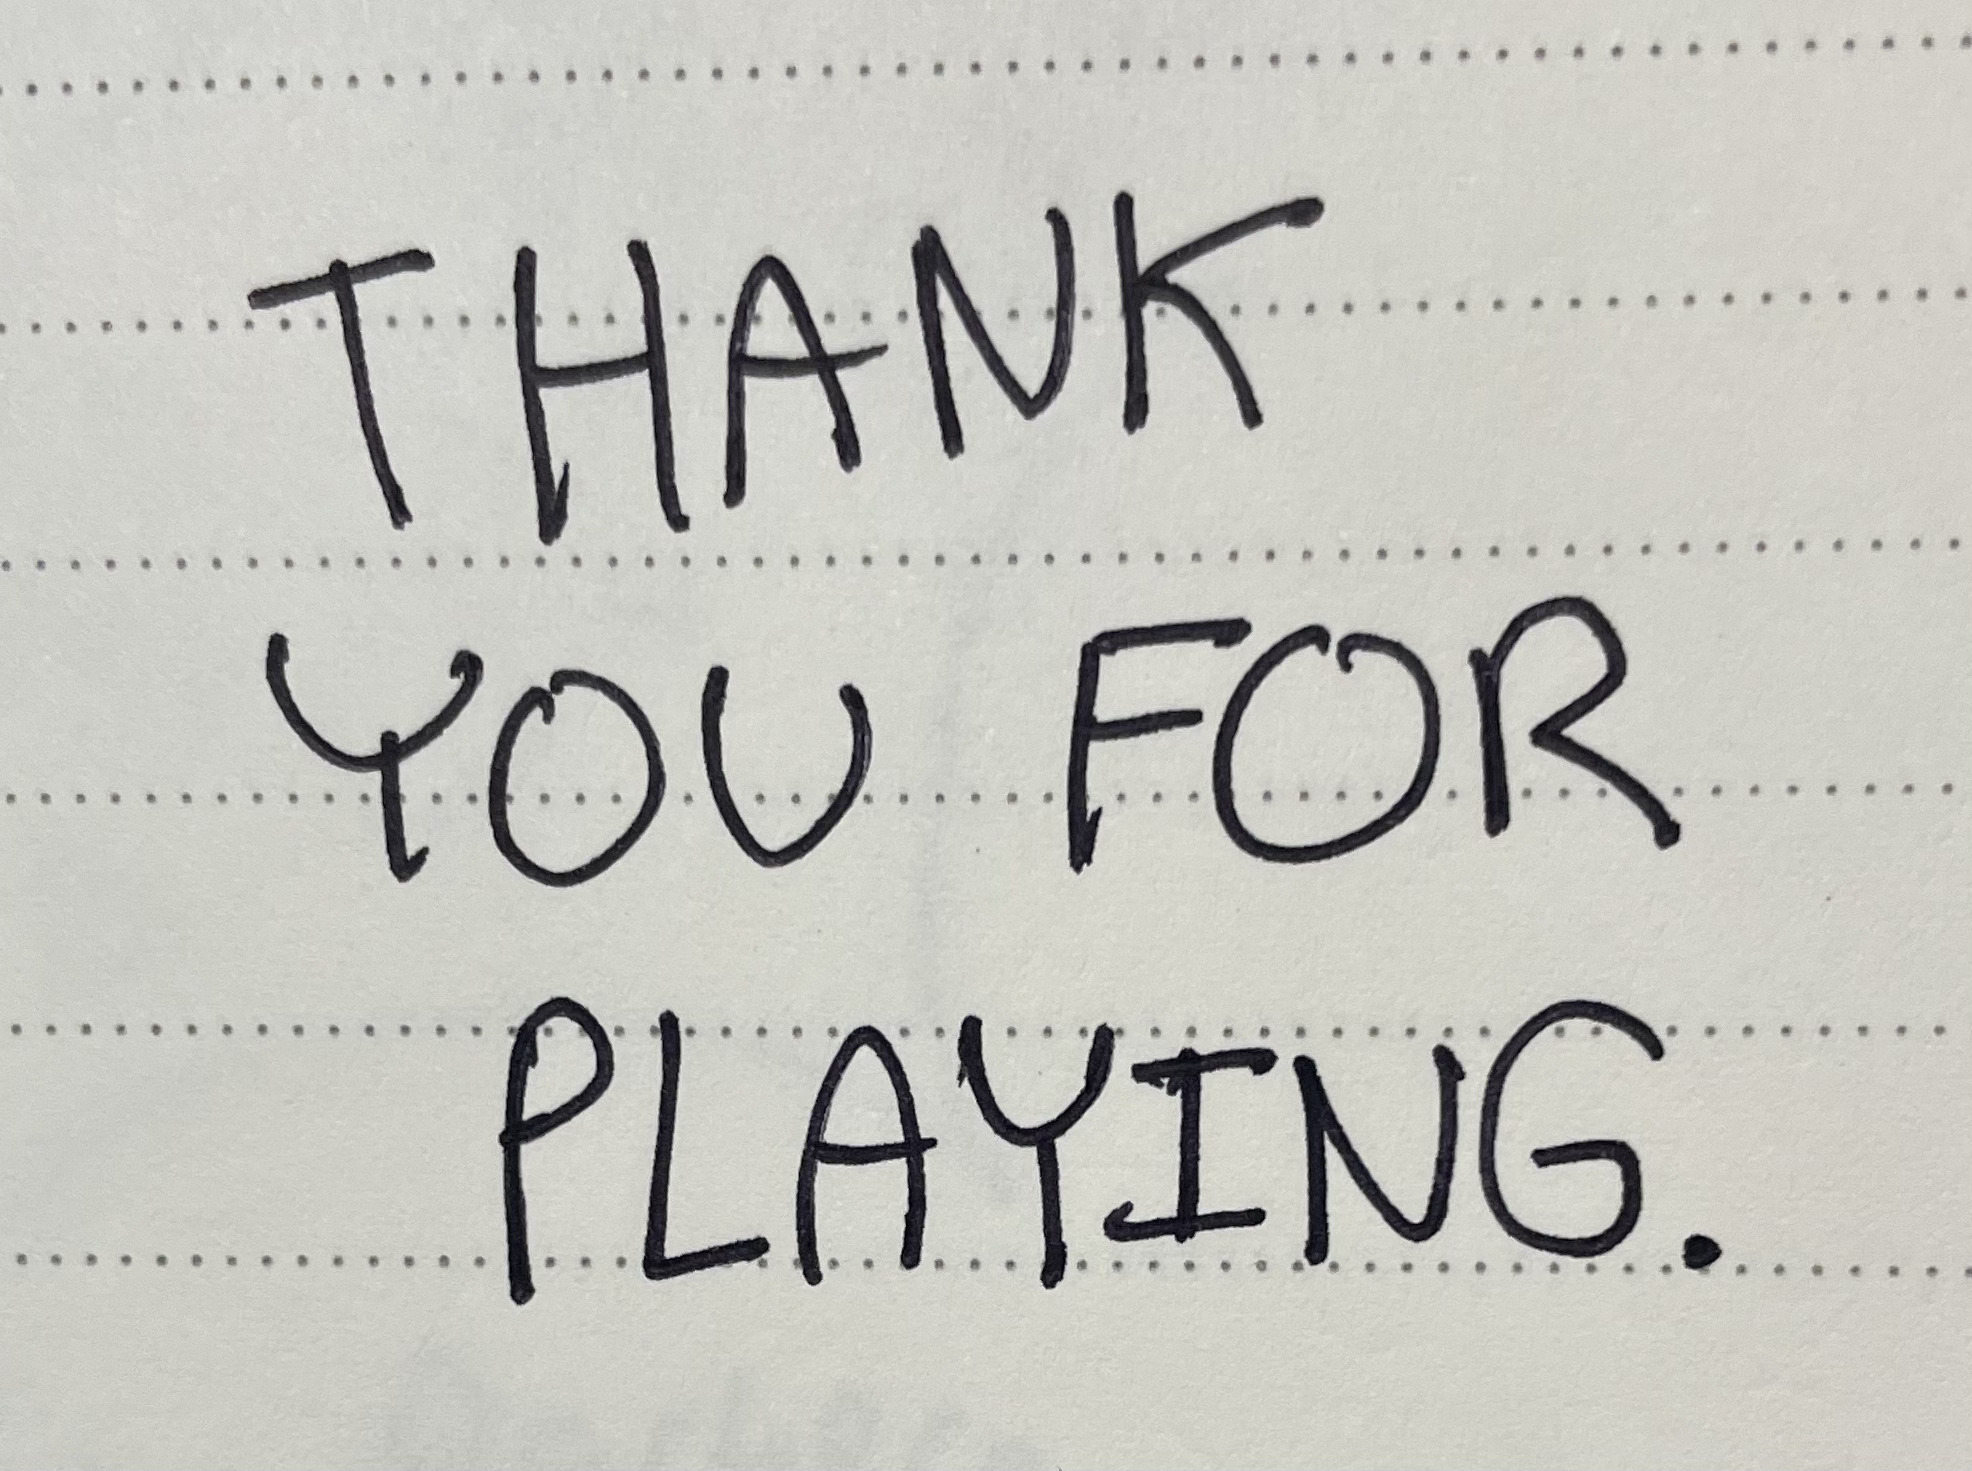 THANK
YOU FOR
PLAYING.